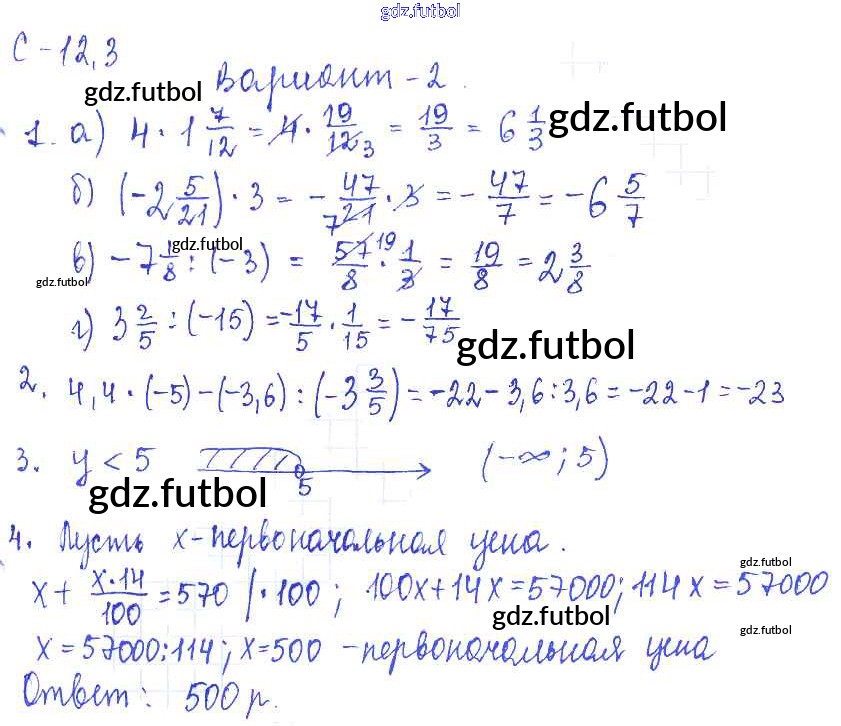 gdz.futbol
С-12,3
Вариант-2.
gdz.futbol
1. а) 4 · 1 7/12 = 4 · 19/12 3 = 19/3 = 6 1/3 gdz.futbol
б) (-2 5/21) · 3 = - 47/7 21 · 3 = - 47/7 = -6 5/7
gdz.futbol
в) -7 1/8 : (-3) = 57 19/8 · 1/3 = 19/8 = 2 3/8
gdz.futbol
г) 3 2/5 : (-15) = -17/5 · 1/15 = - 17/75
gdz.futbol
2. 4,4 · (-5) - (-3,6) : (-3 3/5) = -22 - 3,6 : 3,6 = -22 - 1 = -23
3. y < 5 5 (-∞; 5)
gdz.futbol
4. Пусть x - первоначальная цена.
gdz.futbol
x + x·14/100 = 570 | · 100; 100x + 14x = 57000; 114x = 57000
gdz.futbol
gdz.futbol
x = 57000:114; x = 500 - первоначальная цена
Ответ: 500 р.